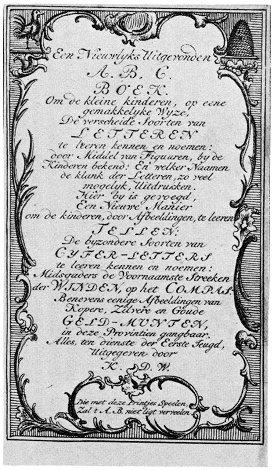 Een Nieuwlyks Uitgevonden
A. B. C.
BOEK.
Om de kleine kinderen, op eene
gemakkelyke Wyze,
De verscheide Soorten van
LETTEREN
te leeren kennen en noemen:
door Middel van Figuuren, by de
Kinderen bekend: En welker Naamen
de klank der Letteren, zo veel
mogelyk, Uitdrukken.
Hier by is gevoegd,
Een Nieuwe Manier
om de kinderen, door Afbeeldingen, te leeren
TELLEN:
De byzondere Soorten van
CYFER-LETTERS
te leeren kennen en noemen:
Midsgaders de Voornaamste Streeken
der WINDEN, op het COMPAS:
Benevens eenige Afbeeldingen van
Kopere, Zilvere en Goude
GELD-MUNTEN,
in deze Provintien gangbaar.
Alles, ten dienste der Eerste Jeugd,
Uitgegeven door
K. D. W.
Die met deze Printjes Speelen
Zal 't A. B. niet ligt verveelen.